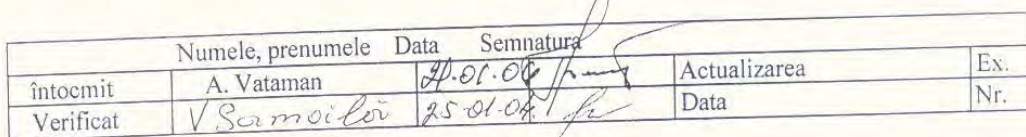 Numele, prenumele Data Semnatura
întocmit A. Vataman 21.01.04 Actualizarea Ex.
Verificat V Samoilov 25-01-04 Data Nr.